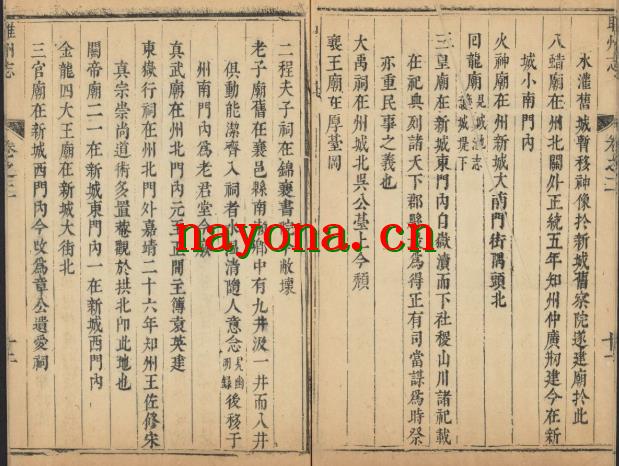 水灌舊城暫移神像於新城舊察院遂建廟於此
八蜡廟在州北關外正統五年知州仲廣刱建今在新
城小南門內
火神廟在州新城大南門街隅頭北
回龍廟見城池志
城堤下
三皇廟在新城東門內自嶽瀆而下社稷山川諸祀載
在祀典列諸天下郡縣為得正有司當謀為時祭
亦重民事之義也
大禹祠在州城北吳公臺上今頹
襄王廟在厚臺岡
二程夫子祠在錦襄書院敝壞
老子廟舊在襄邑縣南鄉中有九井汲一井而八井
俱動能潔齊入祠者清隨人意念幽明錄後移于
州南門內為老君堂今
真武廟在州北門內元至正間主簿袁英建
東嶽行祠在州北門外嘉靖二十六年知州王佐修宋
真宗崇尚道術多置菴觀於拱北即此地也
關帝廟二一在新城東門內一在新城西門內
金龍四大王廟在新城大街北
三官廟在新城西門內今改為章公遺愛祠
睢州志
卷之二
十二
nayona.cn